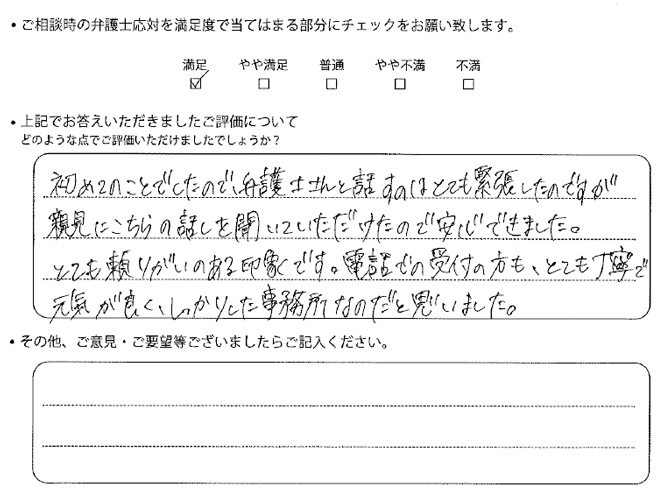 ・ご相談時の弁護士応対を満足度で当てはまる部分にチェックをお願い致します。
満足 やや満足 普通 やや不満 不満
☑ □ □ □ □
・上記でお答えいただきましたご評価について
どのような点でご評価いただけましたでしょうか？
初めてのことでしたので、弁護士さんと話すのはとても緊張したのですが
親見にこちらの話しを聞いていただけたので安心できました。
とても頼りがいのある印象です。電話での受付の方も、とても丁寧で
元気が良く、しっかりした事務所なのだと思いました。
・その他、ご意見・ご要望等ございましたらご記入ください。